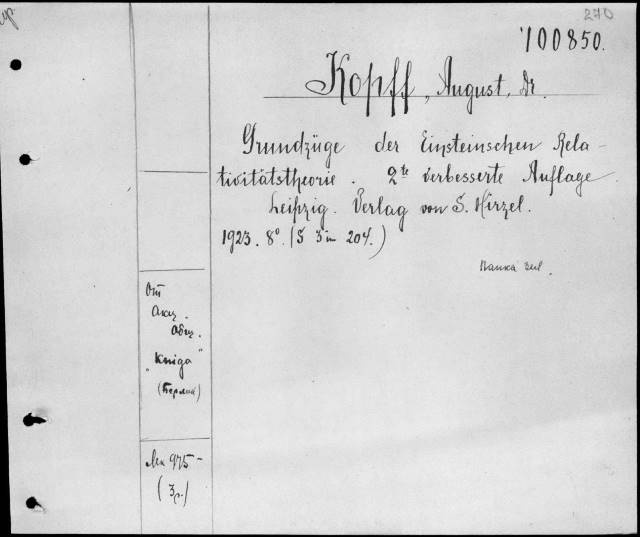 270
100850.
Kopff, August, Dr.
Grundzüge der Einsteinschen Rela-
tivitätstheorie. 2te verbesserte Auflage.
Leipzig. Verlag von S. Hirzel.
1923. 8°. (S 204.)
От
Акц.
Общ.
"Kniga"
(Берлин)
975-
(3р)